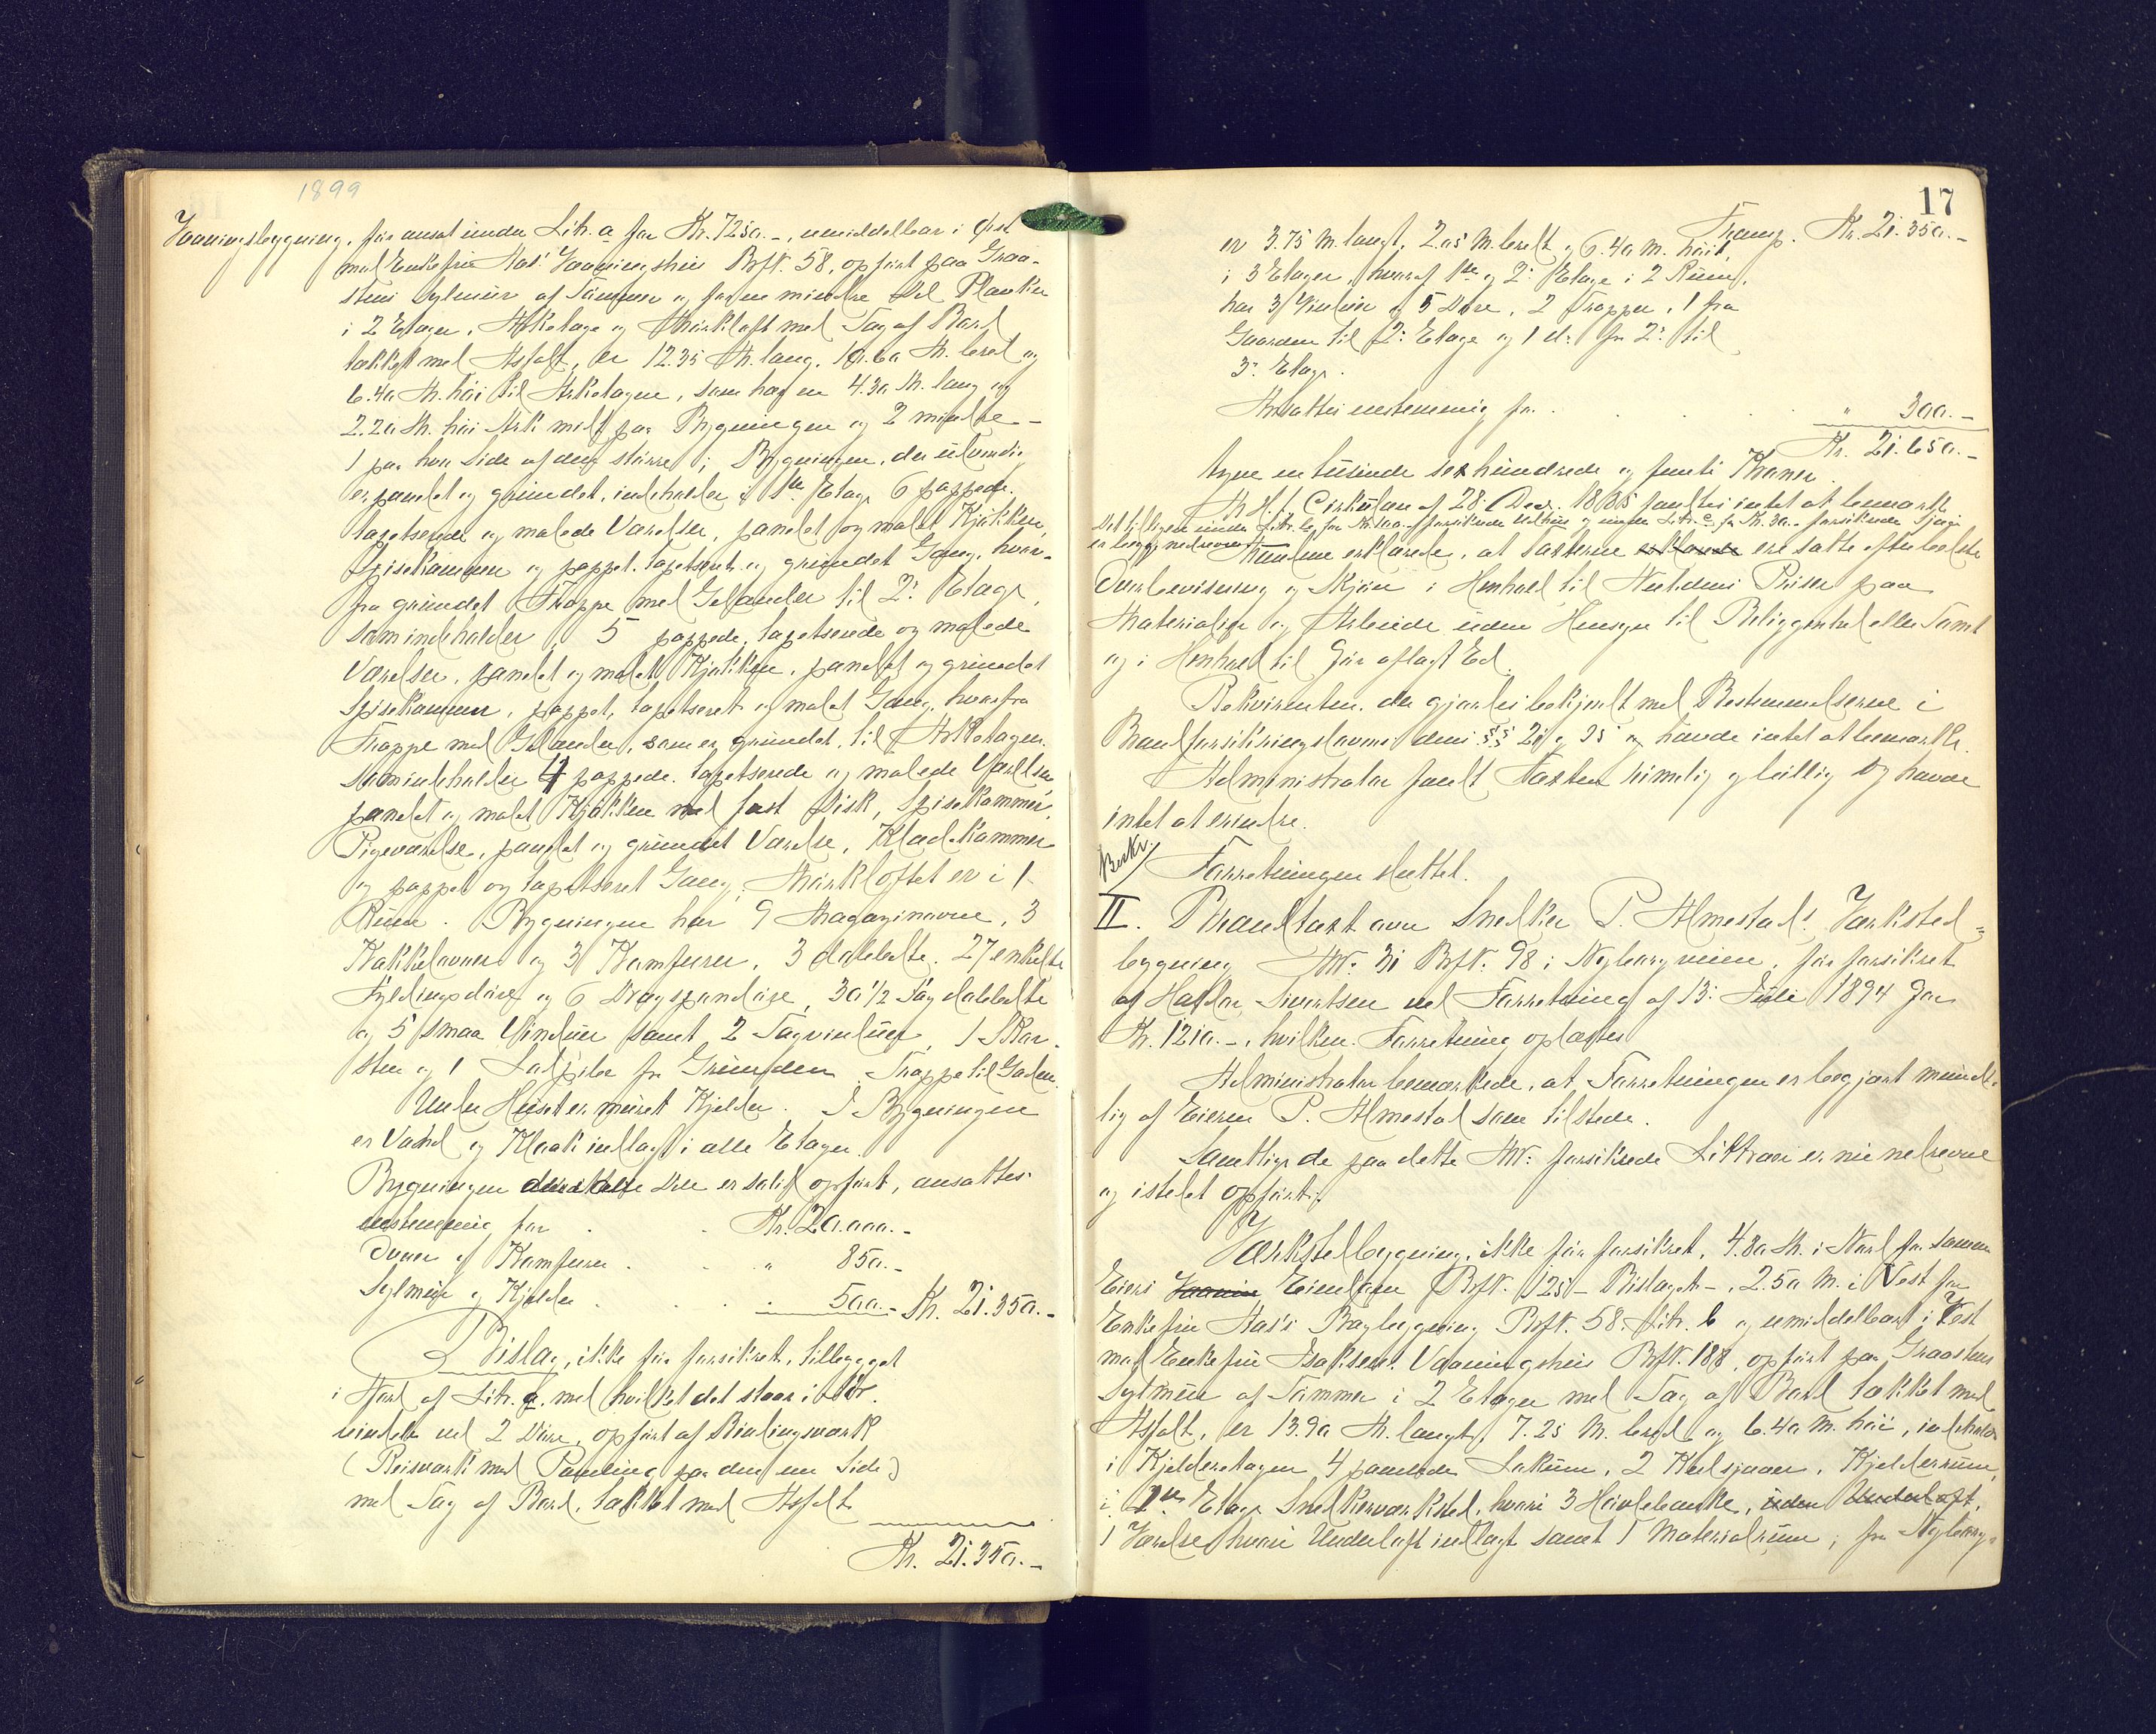 1899
Vaaningsbygning, før ansat under Litr. a for Kr. 7250.-, umiddelbar i Øst
med Enkefru Aas' Vaaningshus Bofk. 58, opført paa Graa-
stens Sylmur af Tømmer og for en mindre Del Planker
i 2 Etager, Arketage og Mørkloft med Tag af Bord
tækket med Asfalt, er 12.35 M. lang, 10.60 M. bred og
6.40 M. høi til Arketagen, som har en 4.30 M. lang og
2.20 M. høi Ark midt paa Bygningen og 2 mindre -
1 paa hver Side af den større; Bygningen, der udvendig
er panelet og grundet, indeholder i 1ste Etage 6 pappede,
tapetserede og malede Værelser, panelet og malet Kjøkken,
Spisekammer og pappet, tapetseret og grundet Gang, hvor-
fra grundet Trappe med Gelænder til 2. Etage,
som indeholder 5 pappede, tapetserede og malede
Værelser, panelet og malet Kjøkken, panelet og grundet
Spisekammer, pappet, tapetseret og malet Gang, hvorfra
Trappe med Gelænder, som er grundet, til Arketagen,
som indeholder 4 pappede, tapetserede og malede Værelser,
panelet og malet Kjøkken med fast Disk, Spisekammer,
Pigeværelse, panelet og grundet Værelse, Klædekammer
og pappet og tapetseret Gang; Mørkloftet er i 1
Rum. Bygningen har 9 Magazinovne, 3
Kakkelovne og 3 Komfurer, 3 dobbelte, 27 enkelte
Fyldingsdøre og 6 Dragspandøre, 30 1/2 Fag dobbelte
og 5 smaa Vinduer samt 2 Tagvinduer, 1 Skor-
sten og 1 Løbpibe fra Grunden. Trappe til Gaden.
Under Huset er muret Kjelder. I Bygningen
er Vand og Kloak indlagt i alle Etager.
Bygningen der er solid opført, ansattes
enstemmig for Kr. 20.000.-
Ovner og Komfurer " 850.-
Sylmur og Kjelder " 500.- Kr. 21.350.-
Bislag, ikke før forsikret, tilbygget
i Nord af Litr. a, med hvilket det staar i For-
bindelse ved 2 Døre, opført af Bindingsværk
(Reisværk med Paneling paa den ene Side)
med Tag af Bord, tækket med Asfalt
Kr. 21.350.-
17
Transp. Kr. 21.350.-
er 3.75 M. langt, 2.05 M. bredt og 6.40 M. høit,
i 3 Etager, hvoraf 1ste og 2. Etage i 2 Rum,
har 3 Vinduer og 5 Døre, 2 Trapper, 1 fra
Gaarden til 2. Etage og 1 do. fra 2. til
3. Etage.
Ansattes enstemmig for " 300.-
Kr. 21.650.-
tyve en tusinde sex hundrede og femti Kroner.
M. H. t. Cirkulære af 28. Decr. 1885 fandtes intet at bemærke
Det tidligere under Litr. b for Kr. 100.- forsikrede Udhus og under Litr. c for Kr. 30.- forsikrede Sjaaj
er begge nedrevne. Mændene erklærede, at taxterne ere satte efter bedste
Overbevisning og Skjøn i Henhold til Nutidens Priser paa
Materialier og Arbeide uden Hensyn til Beliggenhed eller Tomt
og i Henhold til før aflagt Ed.
Rekvirenten, der gjordes bekjendt med Bestemmelserne i
Brandforsikringslovens dens §§ 20 og 25 og havde intet at bemærke.
Administrator fandt Taxten rimelig og billig og havde
intet at erindre.
Beskr. Forretningen sluttet.
II. Brandtaxt over Snedker P. Almestad's Værksted-
bygning Mtr: 31 Bofk. 98 i Nyborgveien, før forsikret
af Haldor Sivertsen ved Forretning af 13. Juli 1894 for
Kr. 1210.-, hvilken Forretning oplæstes
Administrator bemærkede, at Forretningen er begjært mundt-
lig af Eieren P. Almestad som tilstede.
Samtlige de paa dette Mtr: forsikrede Littraer er nu nedrevne
og istedet opført:
Værkstedbygning, ikke før forsikret, 4.80 M. i Nord for samme
Eiers Eiendom Bofk. 125 - Bislaget -, 2.50 M. i Vest for
Enkefru Aas's Bagbygning Bofk. 58 Litr. b og umiddelbart i Vest
med Enkefru Isaksens Vaaningshus Bofk. 188, opført paa Graastens
Sylmur af Tømmer i 2 Etager med Tag af Bord tækket med
Asfalt, er 13.90 M. langt, 7.25 M. bred og 6.40 M. høi, indeholder
i Kjelderetagen 4 panelede Lokum, 2 Kulsjaaer, Kjelderrum,
i 1ste Etage Snedkerværksted, hvori 3 Høvlebænke, uden Underloft,
1 Værelse hvori Underloft indlagt samt 1 Materialrum; fra Nyborg-